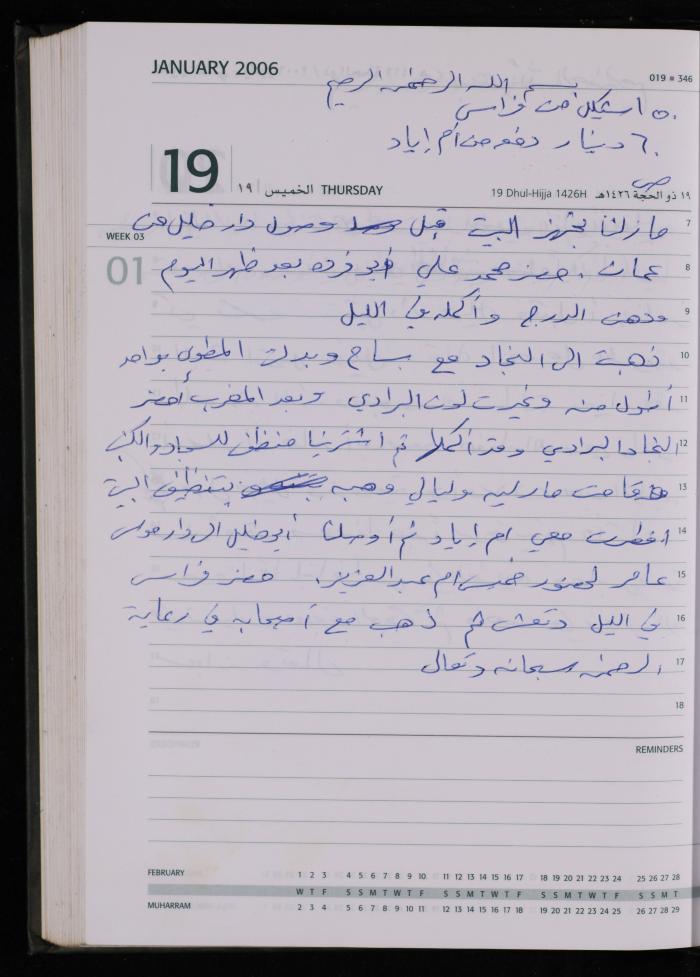 JANUARY 2006
019 ■ 346
بسم الله الرحمن الرحيم
٥٠ استيكل من فراس
٦٠ دينار دفعه من أم إياد
19 ١٩ الخميس THURSDAY
19 Dhul-Hijja 1426H ١٩ ذو الحجة ١٤٢٦هـ
7 ما زلنا نجهز البيت قبل وصول دار خليل من
WEEK 03
8 عمان . حضر محمد علي أبو فرده بعد ظهر اليوم
01
9 ودهن الدرج وأكمله في الليل
10 ذهبت الى النجاد مع سماح وبدلت المطوى بواحد
11 أطول منه وغيرت لون البرادي وبعد المغرب أحضر
12 النجاد البرادي وقد أكملها ثم اشترينا منظف للسجاد والكنب
13 قامت مارليه وليالي وهبه بتنظيف البيت
14 أفطرت معي ام إياد ثم أوصلنا أبو خليل الى دار
15 عامر لحضور خميس ام عبد العزيز . حضر فراس
16 في الليل وتعشى ثم ذهب مع أصحابه في رعاية
17 الرحمن سبحانه وتعالى
18
REMINDERS
FEBRUARY 1 2 3 4 5 6 7 8 9 10 11 12 13 14 15 16 17 18 19 20 21 22 23 24 25 26 27 28
W T F S S M T W T F S S M T W T F S S M T W T F S S M T
MUHARRAM 2 3 4 5 6 7 8 9 10 11 12 13 14 15 16 17 18 19 20 21 22 23 24 25 26 27 28 29